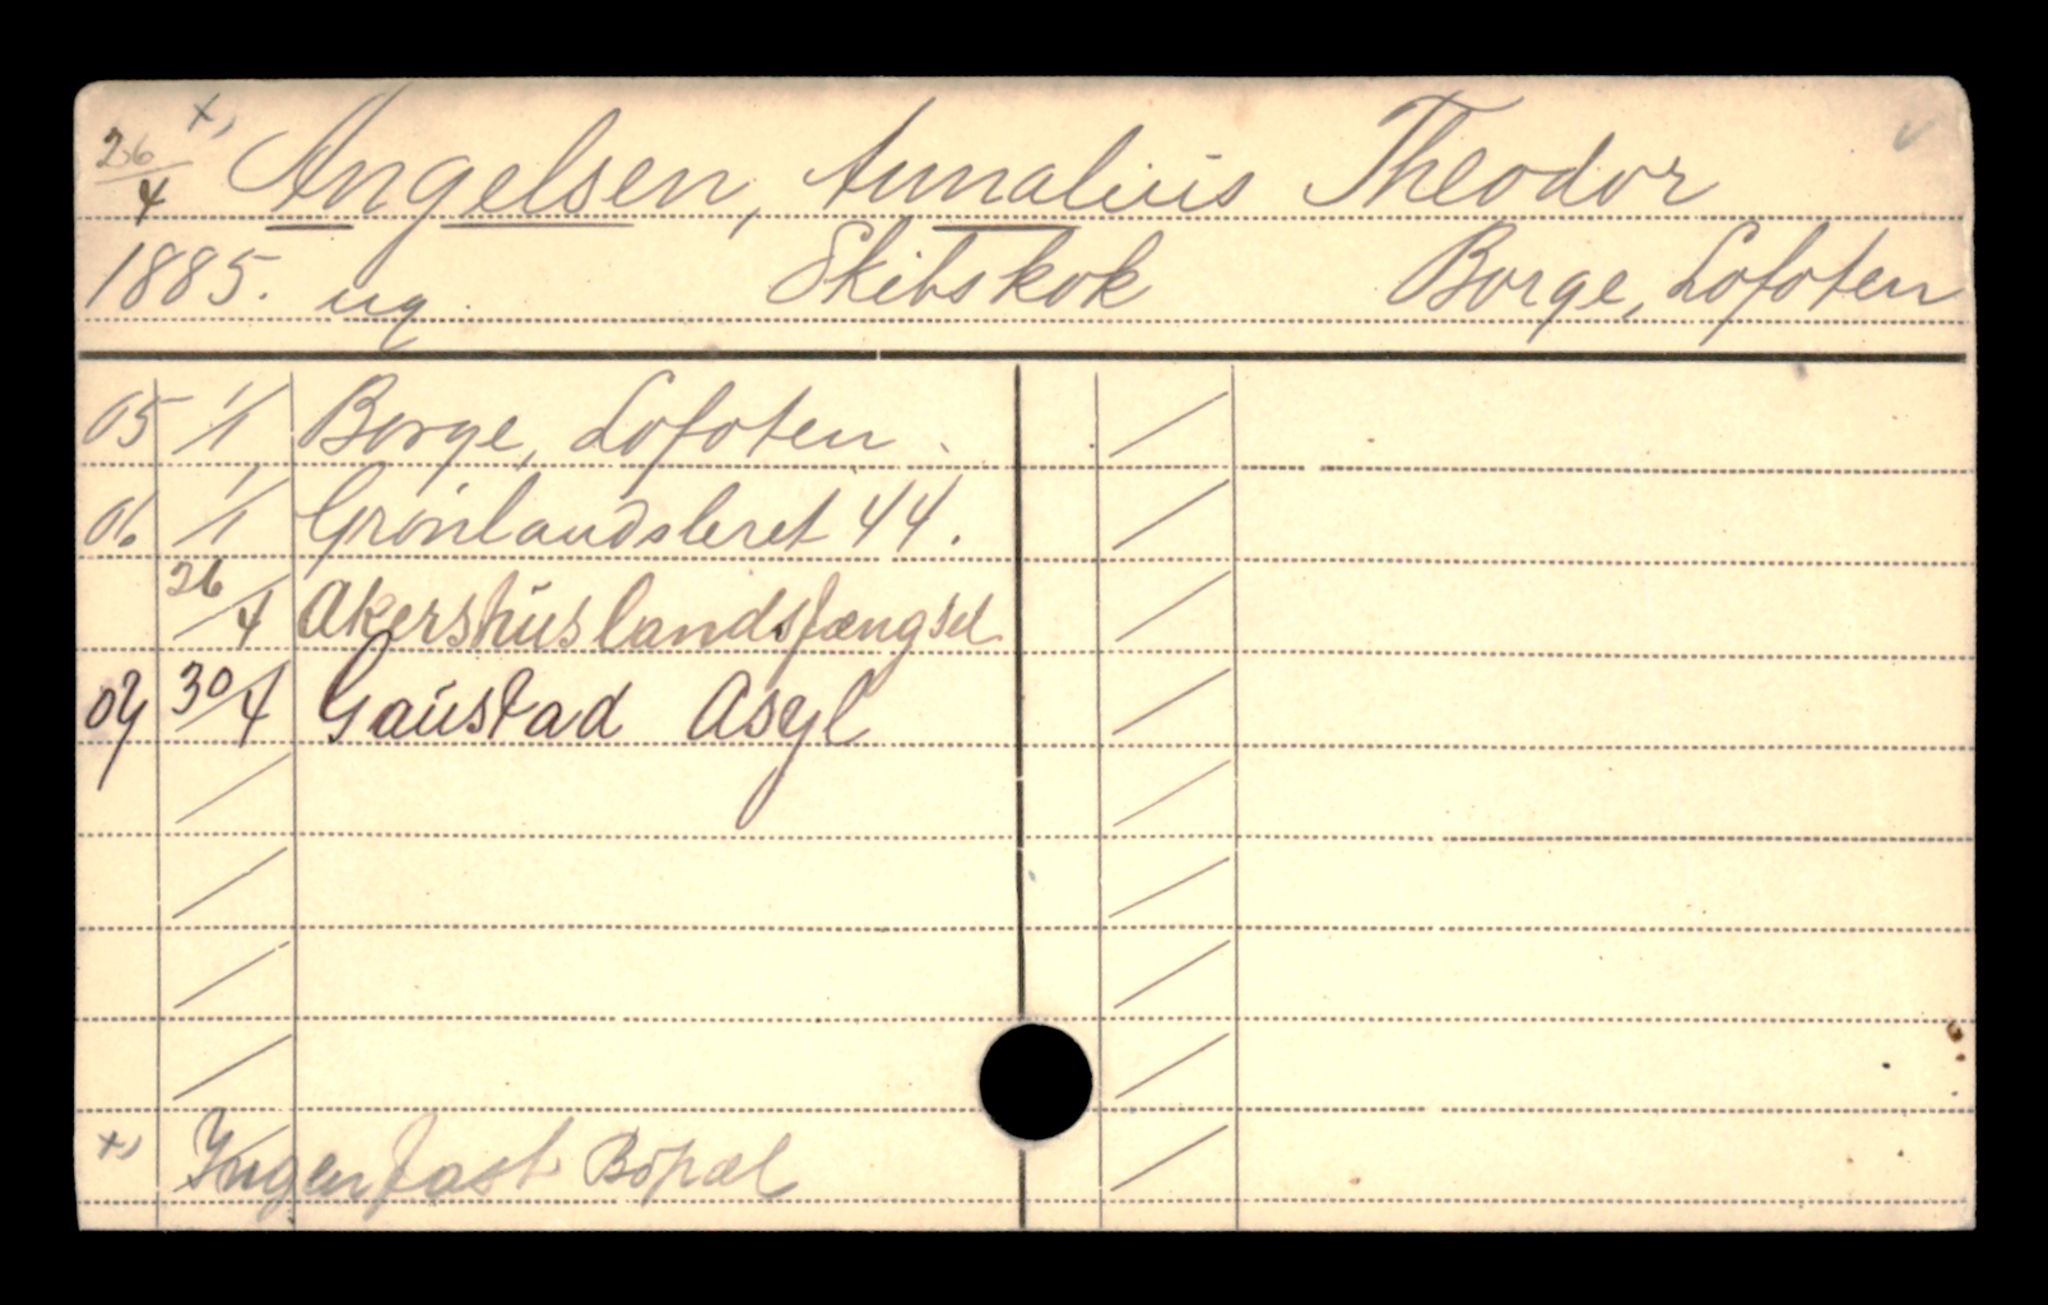 26/4 x) Angelsen, Annalius Theodor
1885. ug. Skibskok Borge, Lofoten
05 1/1 Borge, Lofoten.
06. 1/1 Grønlandsleret 44.
26/4 Akershus landsfængsel
07 30/4 Gaustad Asyl
x) Ingen fast Bopæl